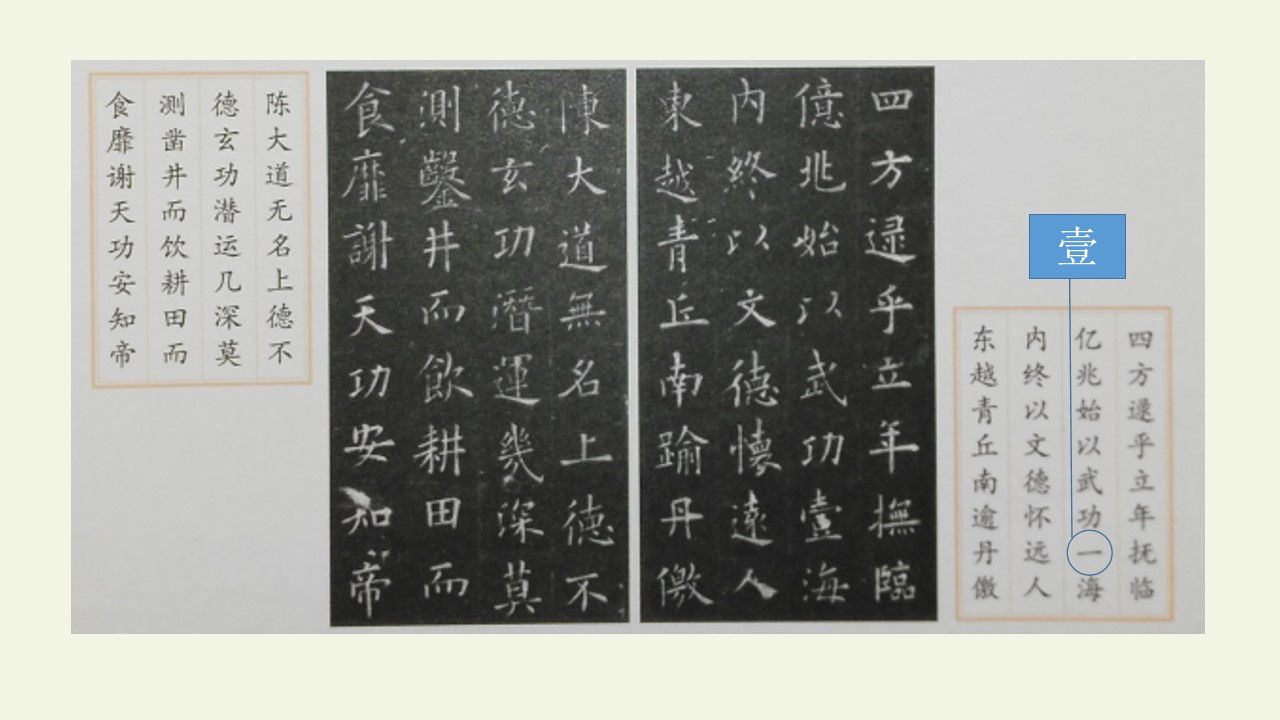 壹
四方逮乎立年抚临
亿兆始以武功一海
内终以文德怀远人
东越青丘南逾丹儌
四方逮乎立年撫臨
億兆始以武功壹海
内終以文德懷遠人
東越青丘南踰丹儌
陳大道無名上德不
德玄功潛運幾深莫
測鑿井而飲耕田而
食靡謝天功安知帝
陈大道无名上德不
德玄功潜运几深莫
测凿井而饮耕田而
食靡谢天功安知帝